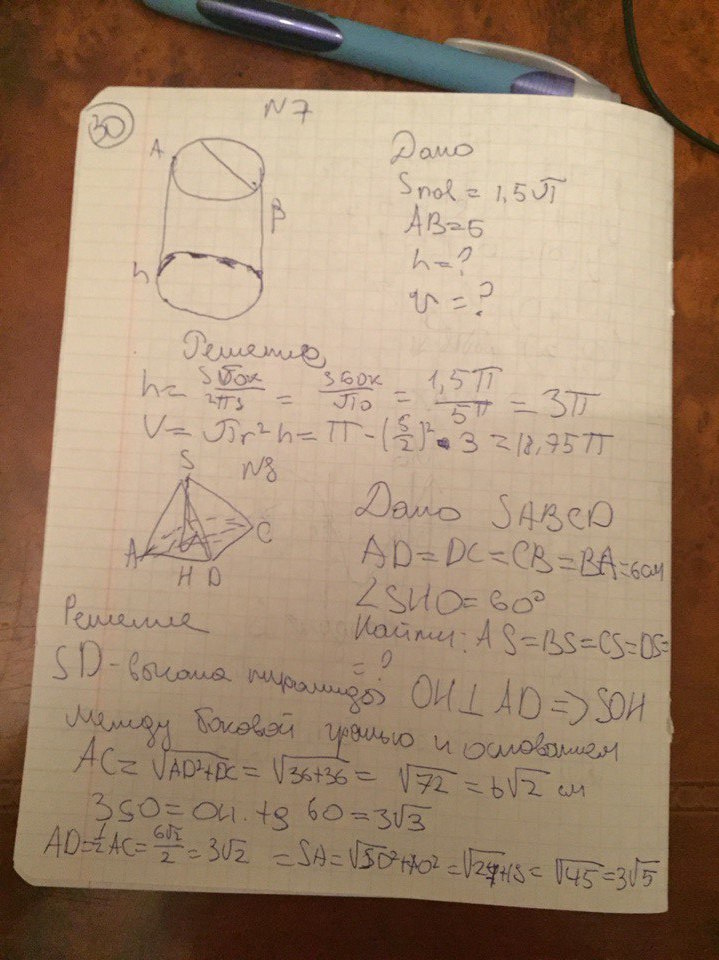 30
N7
A
B
h
Дано
Sпol = 1,5π
AB=5
h=?
V=?
Решение
h= Sбок/2πr = Sбок/πD = 1,5π/5π = 3π
V= πr²h= π - (5/2)² • 3 = 18,75π
N8
S
A
H
D
C
Дано SABCD
AD=DC=CB=BA=6см
∠SHO=60°
Найти: AS=BS=CS=DS=
=?
Решение
SD-высота пирамиды OH⊥AD=>SOH
между боковой гранью и основанием
AC= √AD²+DC = √36+36 = √72 = 6√2 см
3SO=OH.tg 60=3√3
AD=½AC=6√2/2=3√2 =SA=√SD²+AO²=√27+18=√45=3√5